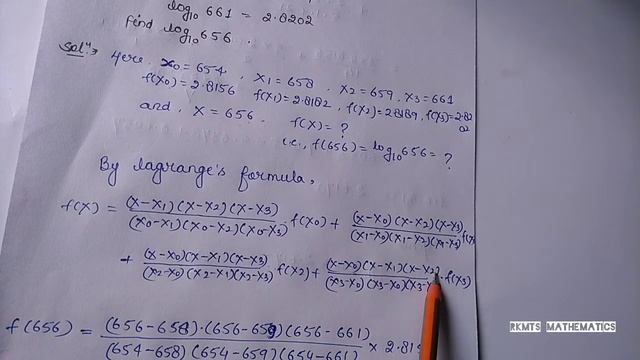 log10 661 = 2.8202
find log10 656.
Solⁿ:→ Here, x0 = 654, x1 = 658, x2 = 659, x3 = 661
f(x0) = 2.8156 f(x1) = 2.8182, f(x2) = 2.8189, f(x3) = 2.82
02
and, x = 656. f(x) = ?
i.e., f(656) = log10 656 = ?
By lagrange's formula,
f(x) = (x-x1)(x-x2)(x-x3)/(x0-x1)(x0-x2)(x0-x3) f(x0) + (x-x0)(x-x2)(x-x3)/(x1-x0)(x1-x2)(x1-x3) f(x1
+ (x-x0)(x-x1)(x-x3)/(x2-x0)(x2-x1)(x2-x3) f(x2) + (x-x0)(x-x1)(x-x2)/(x3-x0)(x3-x0)(x3- .f(x3)
f(656) = (656-658).(656-659)(656-661)/(654-658)(654-659)(654-661) × 2.81
RKMTS MATHEMATICS